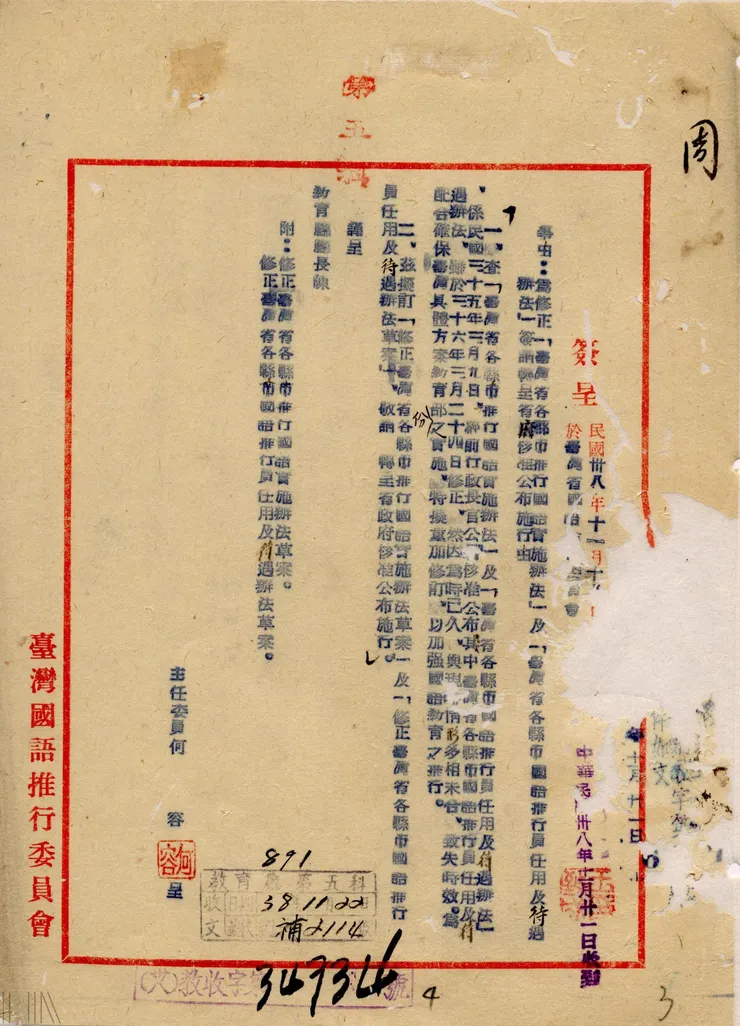 第五科
周
簽呈 民國卅八年十一月十
於臺灣省國語 員會
事由：為修正「臺灣省各縣市推行國語實施辦法」及「臺灣省各縣市國語推行員任用及待遇
辦法」簽請轉呈省府核准公布施行由
一、查「臺灣省各縣市推行國語實施辦法」及「臺灣省各縣市國語推行員任用及待遇辦法」
、係民國三十五年三月九日、 前行政長官公 核准公布其中臺灣省各縣市國語推行員任用及待
遇辦法、 於三十六年三月二十四日修正、然因為時已久、與現 情形多相未合、致失時效。為
配合確保臺灣具體方案教育部份之實施、特擬重加修訂、以加强國語教育之推行。
二、茲擬訂「修正臺灣省各縣市推行國語實施辦法草案」及「修正臺灣省各縣市國語推行
員任用及待遇辦法草案」、敬請 轉呈省政府核准公布施行。
謹呈
教育廳廳長陳
附：修正臺灣省各縣市推行國語實施辦法草案。
修正臺灣省各縣市國語推行員任用及待遇辦法草案。
主任委員何 容 呈
何容
臺灣國語推行委員會
年 月十一日
中華民 卅八年十一月廿一日收到
891
教育廳第五科
收 38.11.22
文 補2114
(艾)教收字 34934 號
4
3